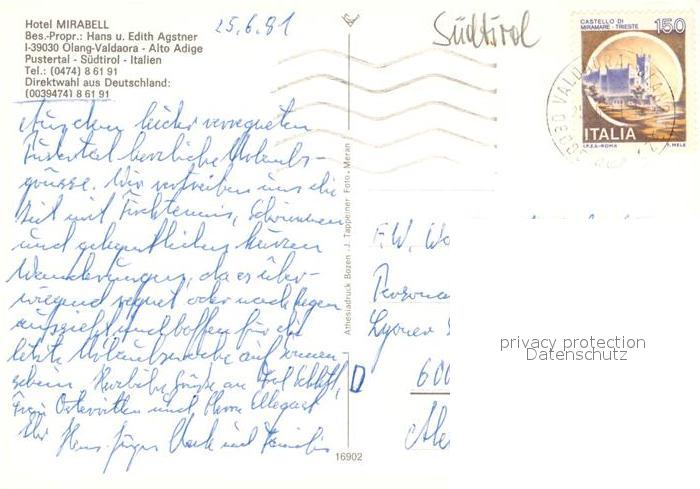 Hotel MIRABELL
Bes.-Propr.: Hans u. Edith Agstner
I-39030 Olang-Valdaora - Alto Adige
Pustertal - Südtirol - Italien
Tel.: (0474) 8 61 91
Direktwahl aus Deutschland:
(00394 74) 8 61 91
25.6.81
Südtirol
CASTELLO DI
MIRAMARE - TRIESTE
150
ITALIA
I.P.Z.S.-ROMA
P. MELE
Aus dem leider verregneten
Pustertal herzliche Urlaubs-
grüsse. Wir vertreiben uns die
Zeit mit Tischtennis, Schwimmen
und gelegentlichen kurzen
Wanderungen, da es über-
wiegend regnet oder nach Regen
aussieht und hoffen für die
letzte Urlaubswoche auf Sonnen-
schein. Herzliche Grüße an
Frau und Herrn
Ihr Hans-Jürgen und Familie
Athesiadruck Bozen - J. Tappeiner Foto - Meran
16902
F.W.
D
600
privacy protection
Datenschutz